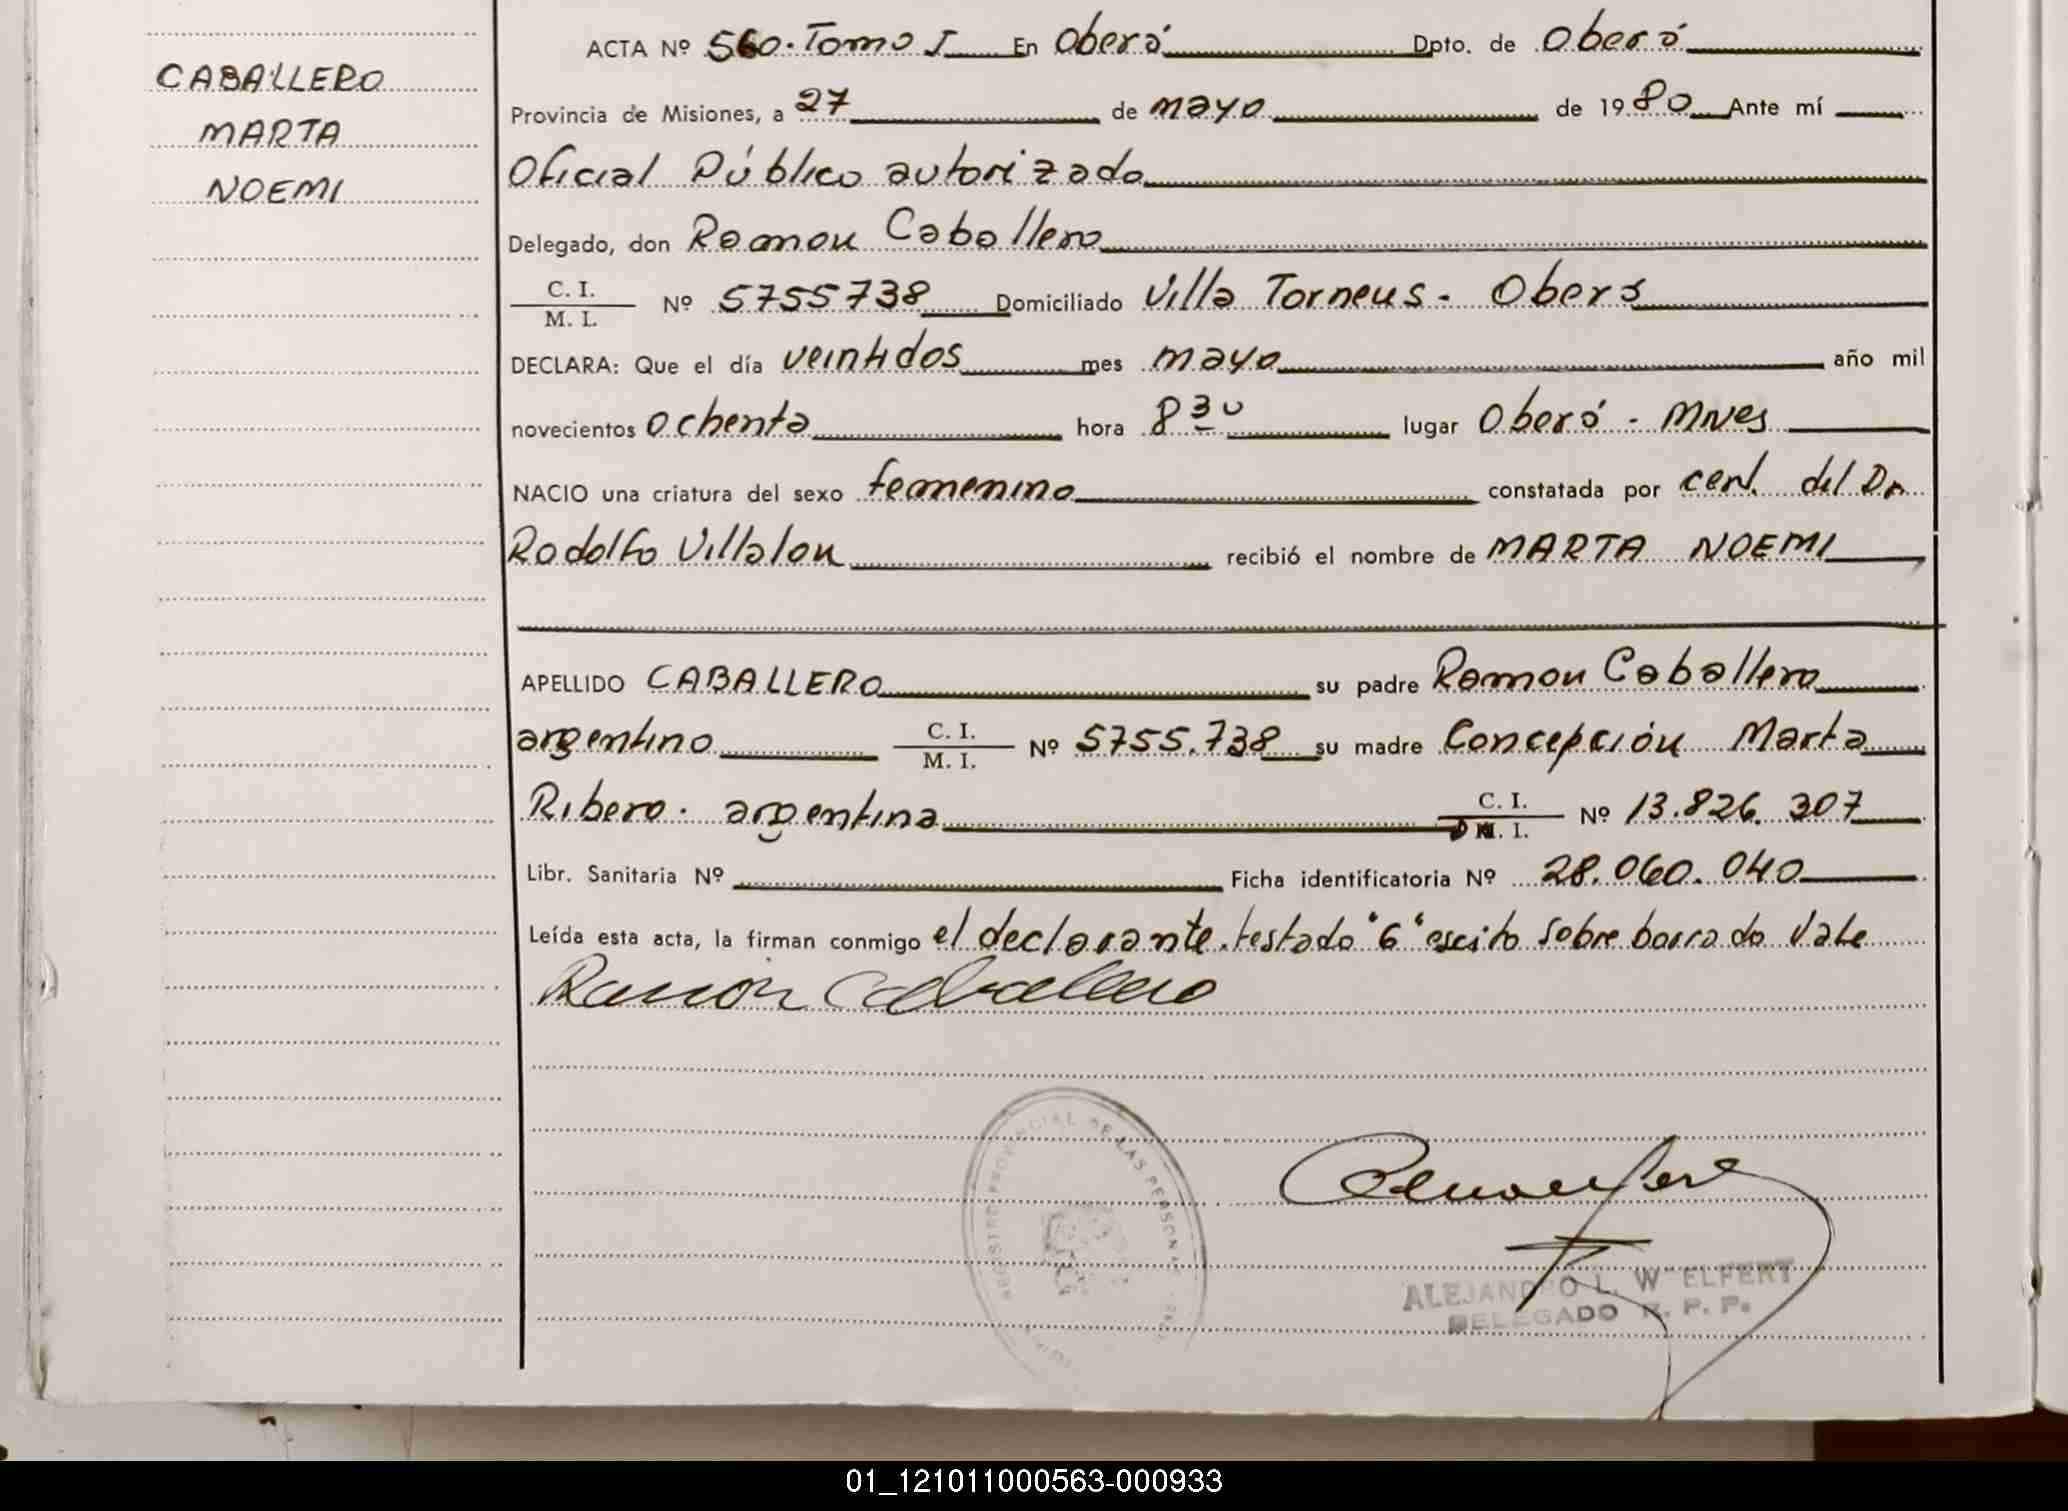 CABALLERO
MARTA
NOEMI
ACTA Nº 560. Tomo I En Oberá Dpto. de Oberá
Provincia de Misiones, a 27 de mayo de 1980 Ante mí
Oficial Público autorizado
Delegado, don Ramon Caballero
C. I.
M. I. Nº 5755738 Domiciliado Villa Torneus - Oberá
DECLARA: Que el día veintidos mes mayo año mil
novecientos ochenta hora 8 30 lugar Oberá - Mnes
NACIO una criatura del sexo femenino constatada por cert. del Dr
Rodolfo Villalon recibió el nombre de MARTA NOEMI
APELLIDO CABALLERO su padre Ramon Caballero
argentino C. I.
M. I. Nº 5755.738 su madre Concepción Marta
Ribero. argentina C. I.
M. I. Nº 13.826.307
Libr. Sanitaria Nº Ficha identificatoria Nº 28.060.040
Leída esta acta, la firman conmigo el declarante. testado "6" escito sobre borrado Vale
Ramón Caballero
REGISTRO PROVINCIAL DE LAS PERSONAS
ALEJANDRO L. WELFERT
DELEGADO R. P. P.
01_121011000563-000933